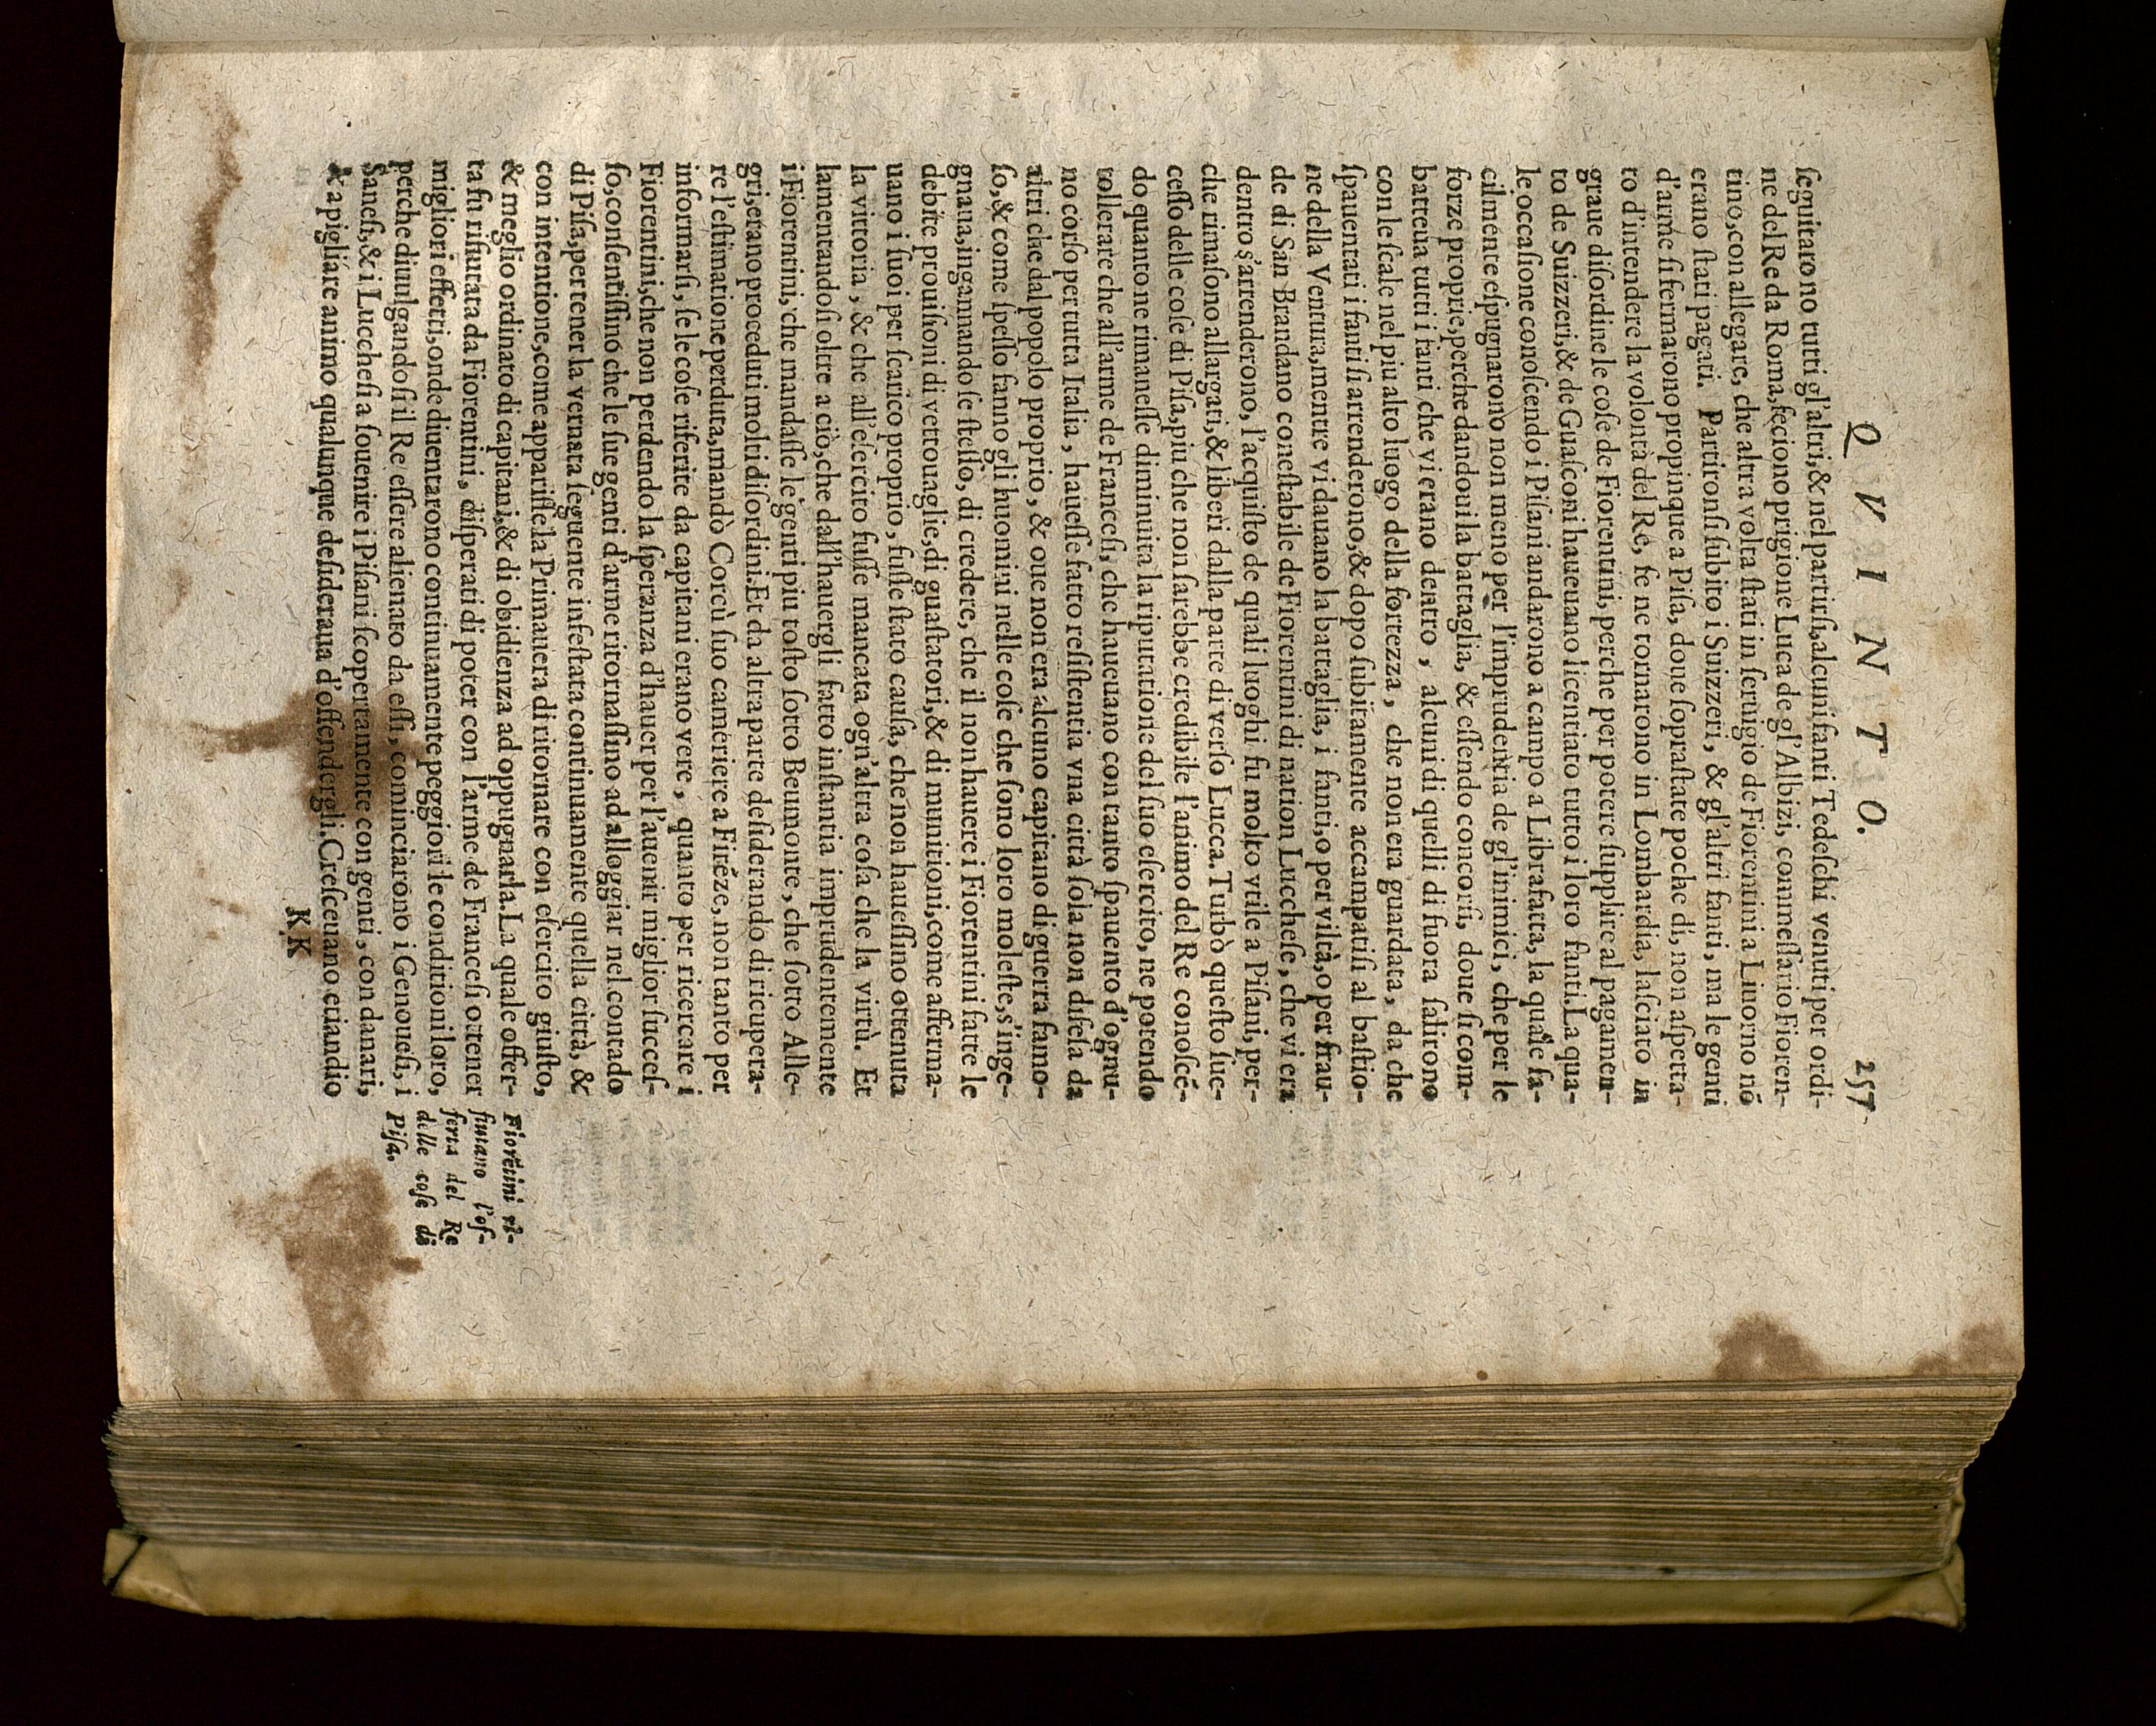 QVINTO. 257
ſeguitarono tutti gl'altri,& nel partirſi,alcuni fanti Tedeſchi venuti per ordi-
ne del Re da Roma,feciono prigione Luca de gl'Albizi, commeſſario Fioren-
tino,con allegare, che altra volta ſtati in ſeruigio de Fiorentini a Liuorno nõ
erano ſtati pagati. Partironſi ſubito i Suizzeri, & gl'altri fanti, ma le genti
d'arme ſi fermarono propinque a Piſa, doue ſopraſtate poche dì, non aſpetta-
to d'intendere la volontà del Re, ſe ne tornarono in Lombardia, laſciato in
graue diſordine le coſe de Fiorentini, perche per potere ſupplire al pagamen-
to de Suizzeri,& de Guaſconi haueuano licentiato tutto i loro fanti.La qua-
le occaſione conoſcendo i Piſani andarono a campo a Librafatta, la quale fa-
cilmente eſpugnarono non meno per l'imprudentia de gl'inimici, che per le
forze proprie,perche dandoui la battaglia, & eſſendo concorſi, doue ſi com-
batteua tutti i fanti, che vi erano dentro, alcuni di quelli di fuora ſalirono
con le ſcale nel piu alto luogo della fortezza, che non era guardata, da che
ſpauentati i fanti ſi arrenderono,& dopo ſubitamente accampatiſi al baſtio-
ne della Ventura,mentre vi dauano la battaglia, i fanti,o per viltà,o per frau-
de di San Brandano coneſtabile de Fiorentini di nation Luccheſe, che vi era
dentro s'arrenderono, l'acquiſto de quali luoghi fu molto vtile a Piſani, per-
che rimaſono allargati,& liberi dalla parte di verſo Lucca.Turbò queſto ſuc-
ceſſo delle coſe di Piſa,piu che non ſarebbe credibile l'animo del Re conoſcẽ-
do quanto ne rimaneſſe diminuita la riputatione del ſuo eſercito, ne potendo
tollerare che all'arme de Franceſi, che haueuano con tanto ſpauento d'ognu-
no corſo per tutta Italia, haueſſe fatto reſiſtentia vna città ſola non difeſa da
altri che dal popolo proprio, & oue non era alcuno capitano di guerra famo-
ſo,& come ſpeſſo fanno gli huomini nelle coſe che ſono loro moleſte,s'inge-
gnaua,ingannando ſe ſteſſo, di credere, che il non hauere i Fiorentini fatte le
debite prouiſioni di vettouaglie,di guaſtatori,& di munitioni,come afferma-
uano i ſuoi per ſcarico proprio, fuſſe ſtato cauſa, che non haueſſino ottenuta
la vittoria, & che all'eſercito fuſſe mancata ogn'altra coſa che la virtù. Et
lamentandoſi oltre a ciò,che dall'hauergli fatto inſtantia imprudentemente
i Fiorentini, che mandaſſe le genti piu toſto ſotto Beumonte, che ſotto Alle-
gri,erano proceduti molti diſordini.Et da altra parte deſiderando di ricupera-
re l'eſtimatione perduta,mandò Corcù ſuo cameriere a Firẽze, non tanto per
informarſi, ſe le coſe riferite da capitani erano vere, quanto per ricercare i
Fiorentini,che non perdendo la ſperanza d'hauer per l'auenir miglior ſucceſ-
ſo,conſentiſſino che le ſue genti d'arme ritornaſſino ad alloggiar nel contado
di Piſa,per tener la vernata ſeguente infeſtata continuamente quella città, &
con intentione,come appariſſe la Primauera di ritornare con eſercito giuſto,
& meglio ordinato di capitani,& di obidienza ad oppugnarla.La quale offer-
ta fu rifiutata da Fiorentini, diſperati di poter con l'arme de Franceſi ottener
migliori effetti, onde diuentarono continuamente peggiori le conditioni loro,
perche diuulgandoſi il Re eſſere alienato da eſſi, cominciarono i Genoueſi, i
Saneſi,& i Luccheſi a ſouenire i Piſani ſcopertamente con genti, con danari,
& a pigliare animo qualunque deſideraua d'offendergli.Creſceuano etiandio
Fiorẽtini ri-
fiutano l'of-
ferta del Re
delle coſe di
Piſa.
KK